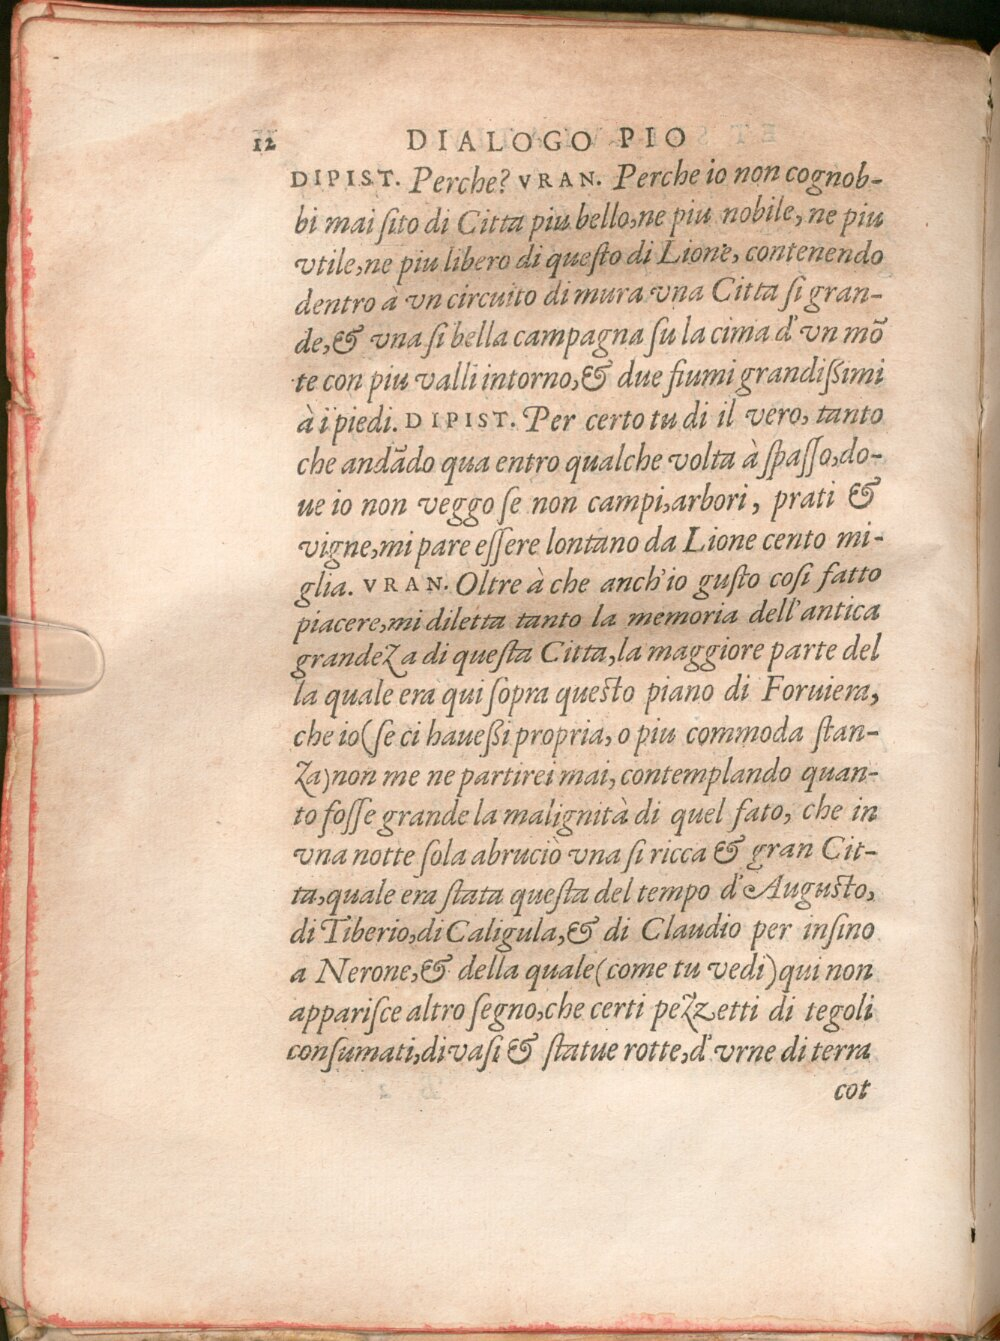 12 DIALOGO PIO
DIPIST. Perche? VRAN. Perche io non cognob-
bi mai ſito di Citta piu bello, ne piu nobile, ne piu
vtile, ne piu libero di queſto di Lione, contenendo
dentro à vn circuito di mura vna Citta ſi gran-
de, & vna ſi bella campagna ſu la cima d'vn mõ
te con piu valli intorno, & due fiumi grandiſſimi
à i piedi. DIPIST. Per certo tu di il vero, tanto
che andãdo qua entro qualche volta à ſpaſſo, do-
ue io non veggo ſe non campi, arbori, prati &
vigne, mi pare eſſere lontano da Lione cento mi-
glia. VRAN. Oltre à che anch'io guſto coſi fatto
piacere, mi diletta tanto la memoria dell'antica
grandeza di queſta Citta, la maggiore parte del
la quale era qui ſopra queſto piano di Foruiera,
che io (ſe ci haueſſi propria, o piu commoda ſtan-
za) non me ne partirei mai, contemplando quan-
to foſſe grande la malignità di quel fato, che in
vna notte ſola abruciò vna ſi ricca & gran Cit-
ta, quale era ſtata queſta del tempo d'Auguſto,
di Tiberio, di Caligula, & di Claudio per inſino
a Nerone, & della quale (come tu vedi) qui non
appariſce altro ſegno, che certi pezzetti di tegoli
conſumati, di vaſi & ſtatue rotte, d'vrne di terra
cot